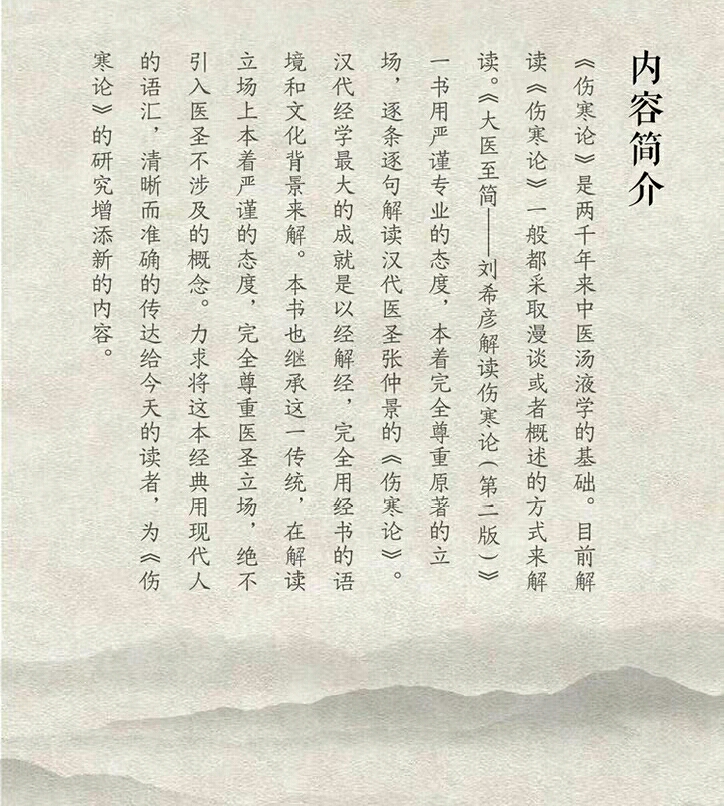 内容简介
《伤寒论》是两千年来中医汤液学的基础。目前解
读《伤寒论》一般都采取漫谈或者概述的方式来解
读。《大医至简——刘希彦解读伤寒论(第二版)》
一书用严谨专业的态度，本着完全尊重原著的立
场，逐条逐句解读汉代医圣张仲景的《伤寒论》。
汉代经学最大的成就是以经解经，完全用经书的语
境和文化背景来解。本书也继承这一传统，在解读
立场上本着严谨的态度，完全尊重医圣立场，绝不
引入医圣不涉及的概念。力求将这本经典用现代人
的语汇，清晰而准确的传达给今天的读者，为《伤
寒论》的研究增添新的内容。